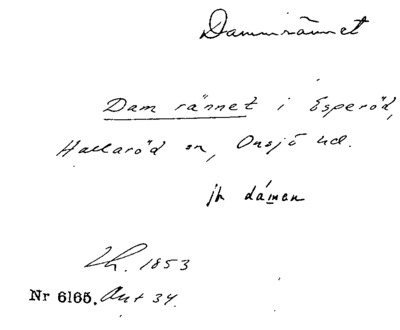 Dammrännet
Dam rännet i Esperöd,
Hallaröd sn, Onsjö hd.
jh dámen
Lh. 1853
Nr 6165. Ant 34.